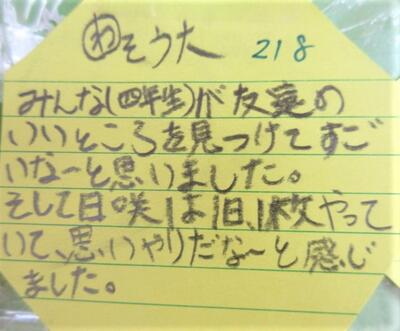 ㋧そう太 218
みんな(四年生)が友達の
いいところを見つけてすご
いなーと思いました。
そして日咲は1日、1枚やって
いて、思いやりだな~と感じ
ました。